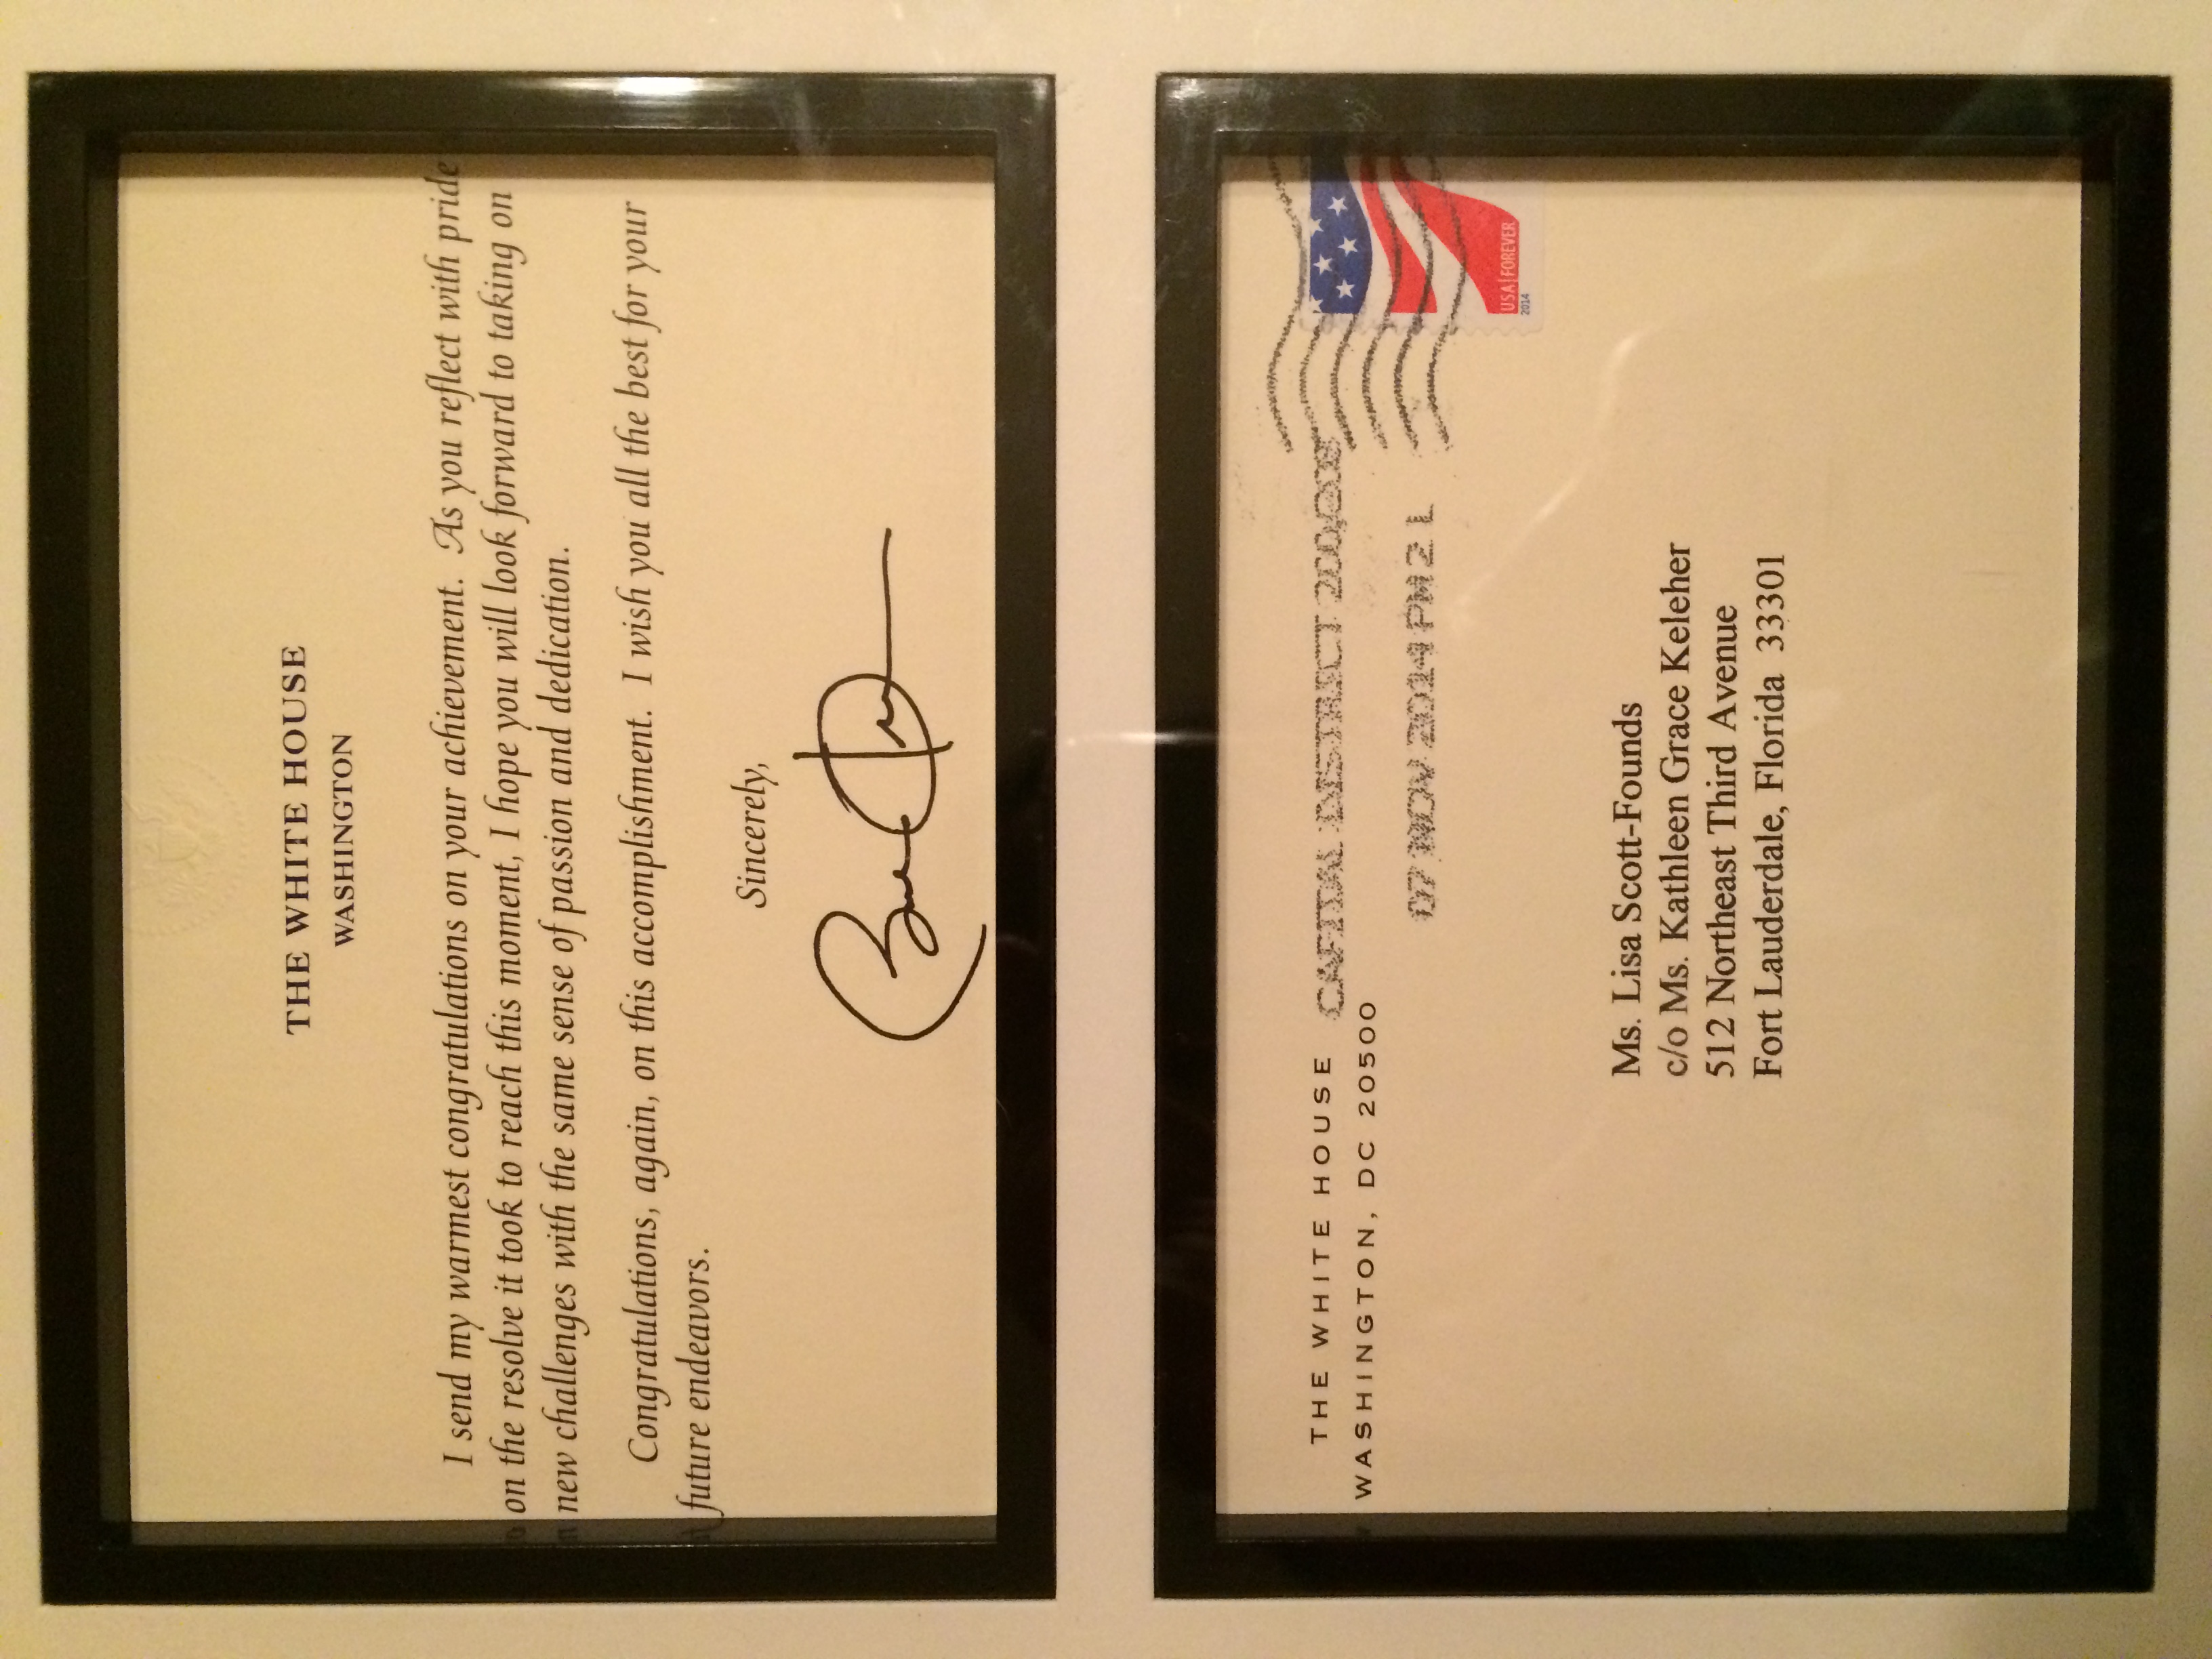 THE WHITE HOUSE
WASHINGTON
I send my warmest congratulations on your achievement. As you reflect with pride
on the resolve it took to reach this moment, I hope you will look forward to taking on
new challenges with the same sense of passion and dedication.
Congratulations, again, on this accomplishment. I wish you all the best for your
future endeavors.
Sincerely,
THE WHITE HOUSE
WASHINGTON, DC 20500
CAPITAL DISTRICT
07 NOV 2014 PM 2 L
USA FOREVER
2014
Ms. Lisa Scott-Founds
c/o Ms. Kathleen Grace Keleher
512 Northeast Third Avenue
Fort Lauderdale, Florida 33301